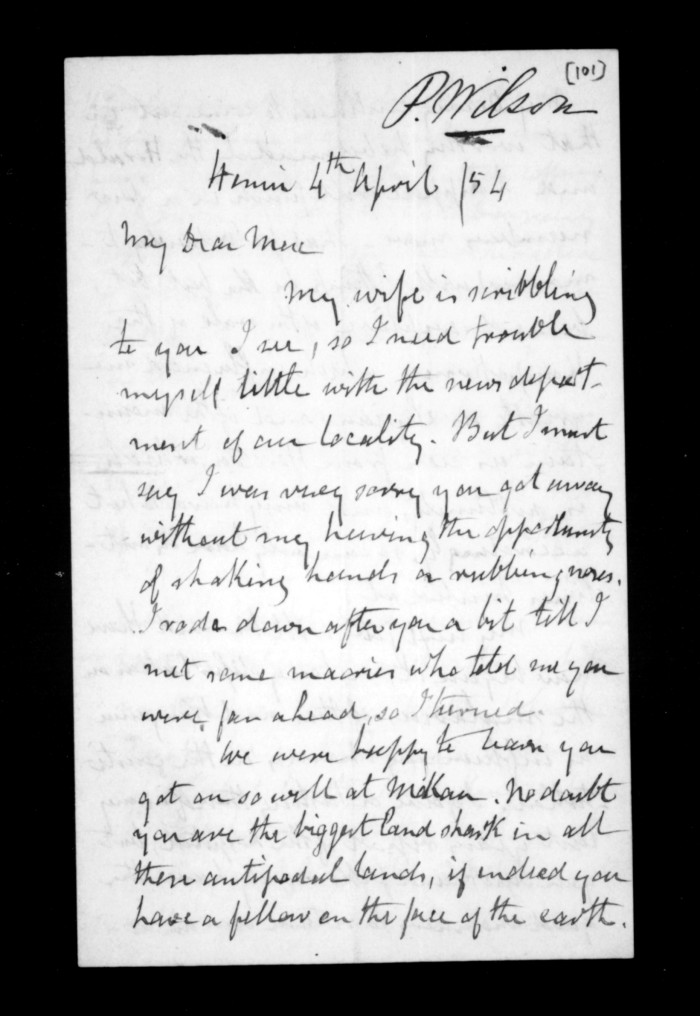 [101]
P. Wilson
4th April /54
My Dear Mac
My wife is scribbling
to you I see, so I need trouble
myself little with the news depart-
ment of our locality. But I must
say I was very sorry you got away
without my having the opportunity
of shaking hands or rubbing noses.
I rode down after you a bit till I
met some maories who told me you
were far ahead, so I turned.
We were happy to learn you
got on so well at Mokau. No doubt
you are the biggest land shark in all
these antipodal lands, if indeed you
have a fellow on the face of the earth.